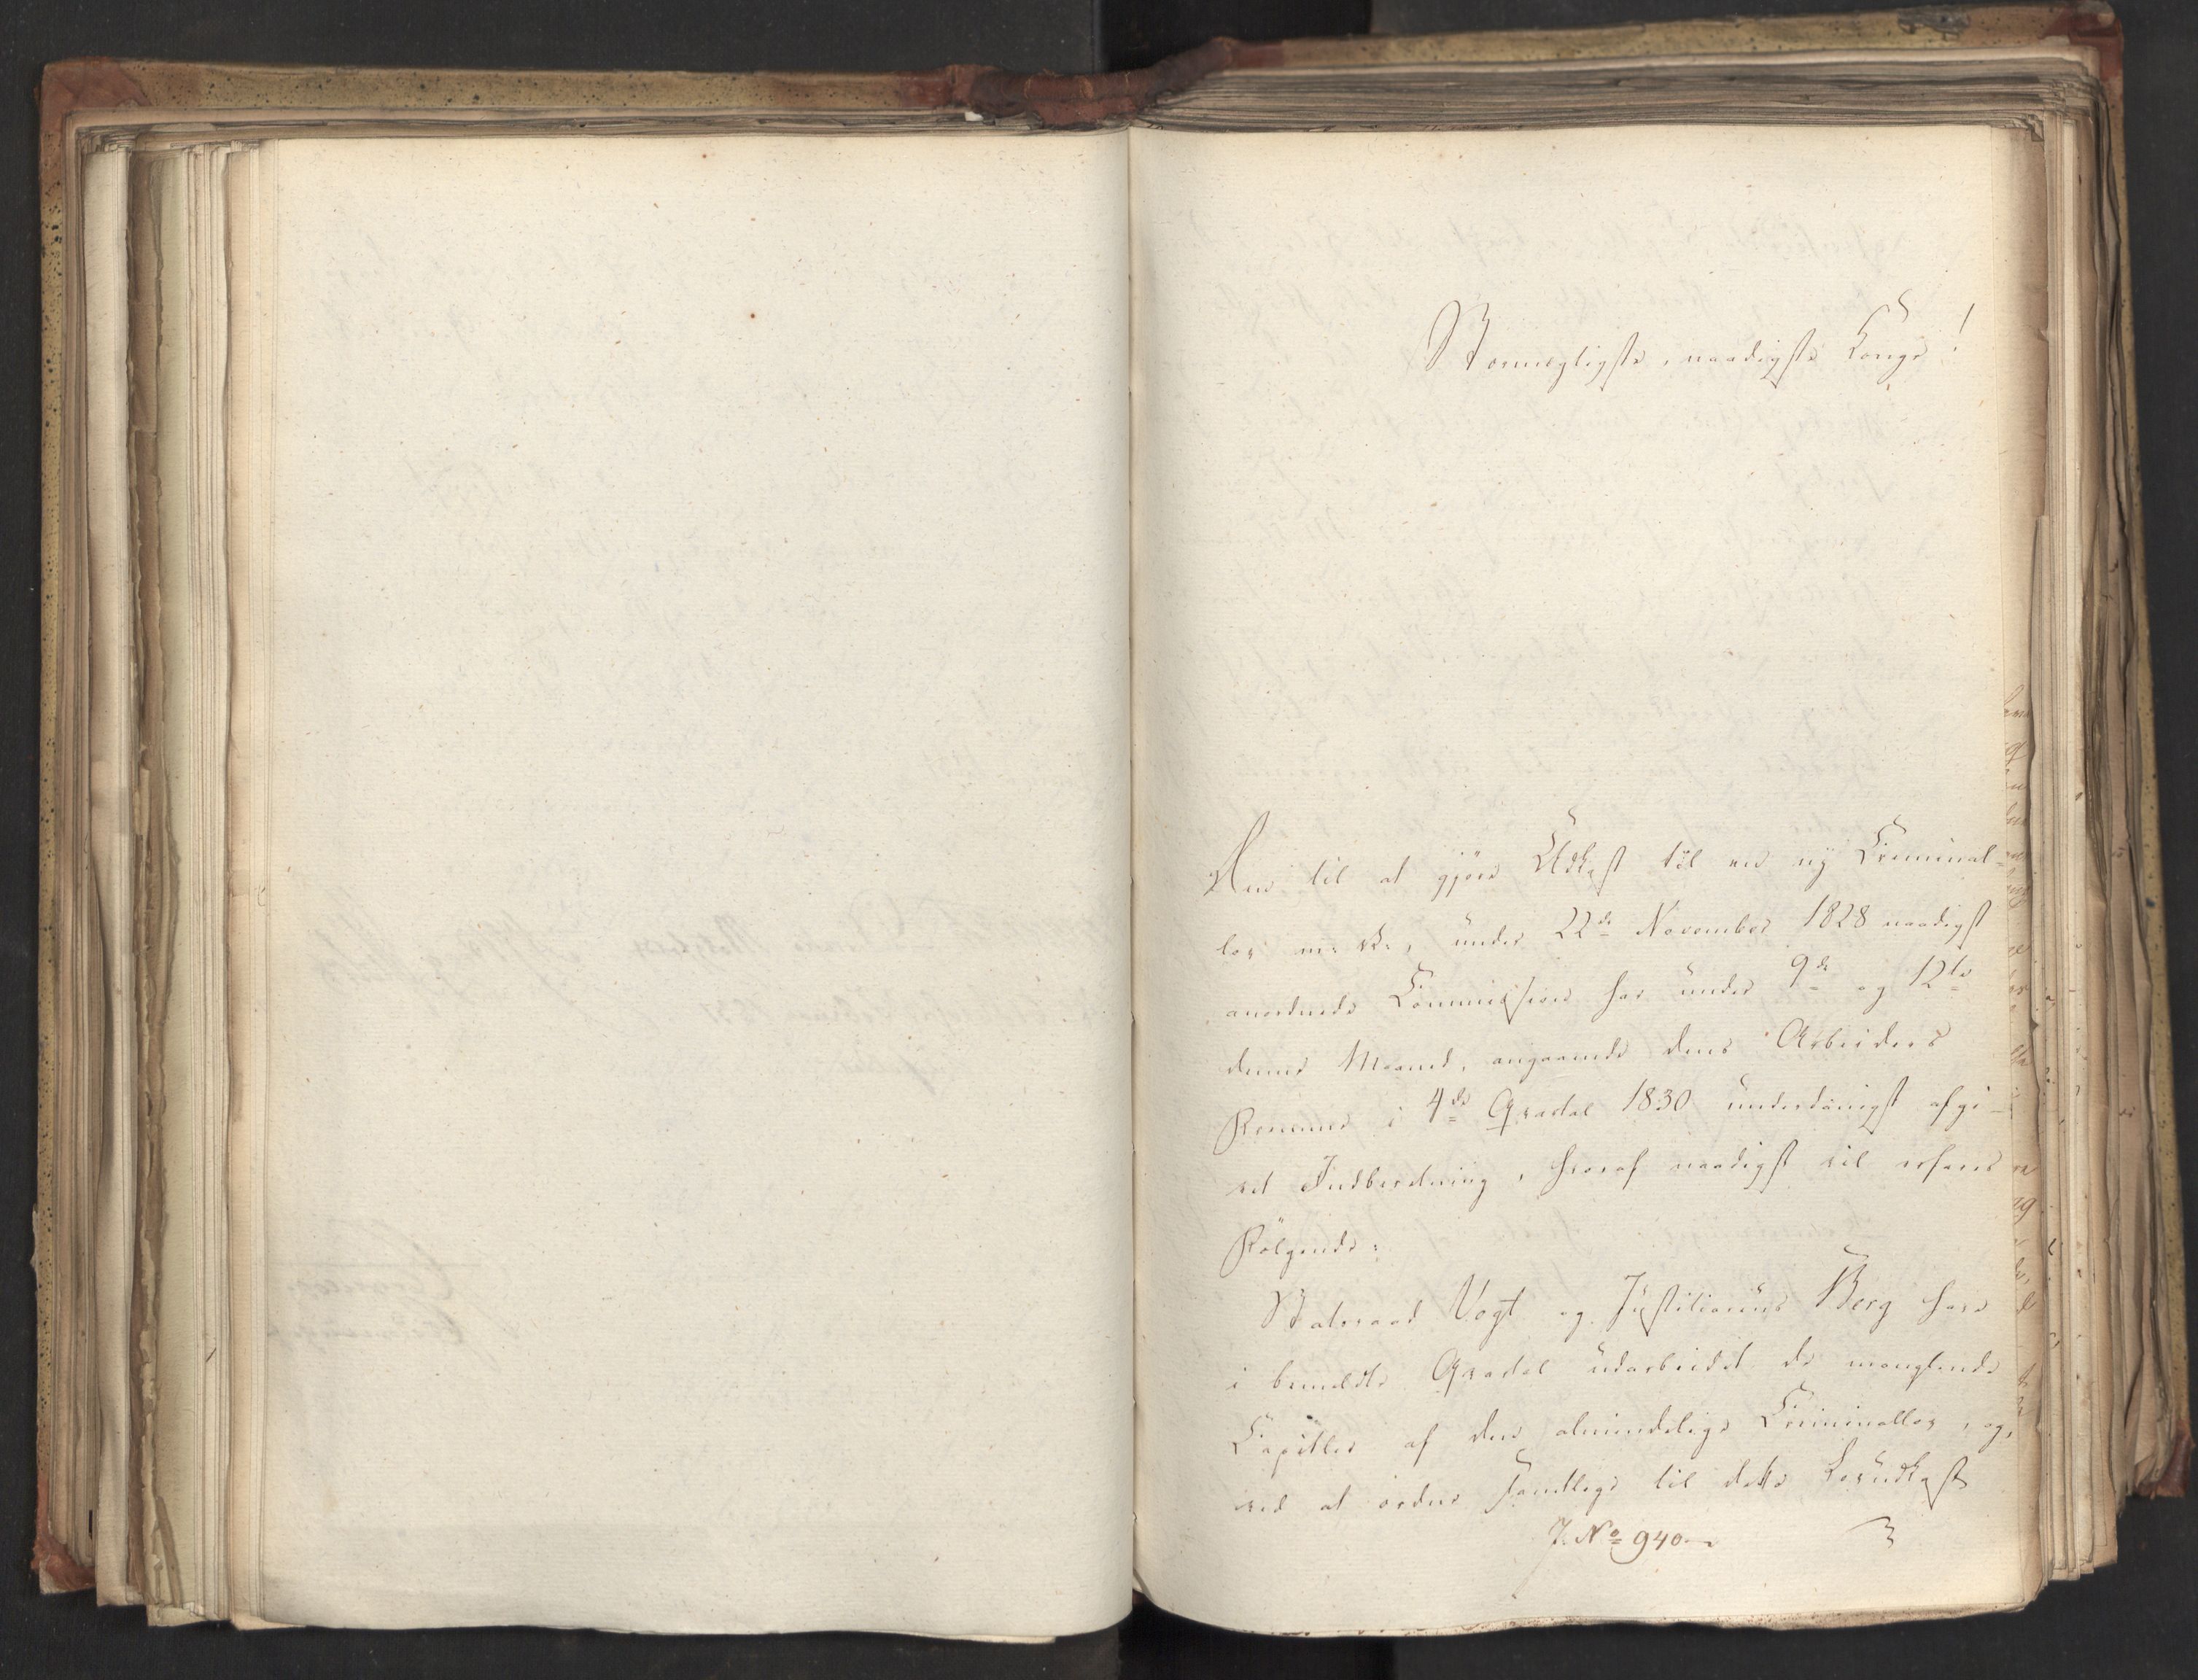 Stormægtigste, naadigste Konge!
Den til at gjøre Udkast til en ny Criminal-
lov m: v:, under 22de November 1828 naadigst
anordnede Commission har under 9de og 12te
denne Maaned, angaaende dens Arbeiders
Fremme i 4de Qvartal 1830 underdanigst afgi-
vet Indberetning, hvoraf naadigst vil erfares
Følgende:
Statsraad Vogt og Justitiarius Berg have
i bemeldte Qvartal udarbeidet de manglende
Capitler af den almindelige Criminallov, og,
ved at ordne samtlige til dette Lovudkast
J. No 940.